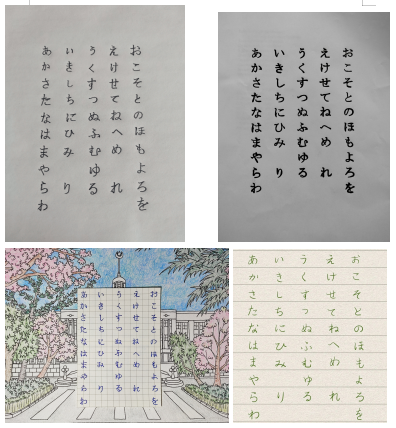 おこそとのほもよろを
えけせてねへめ れ
うくすつぬふむゆる
いきしちにひみ り
あかさたなはまやらわ
おこそとのほもよろを
えけせてねへめ れ
うくすつぬふむゆる
いきしちにひみ り
あかさたなはまやらわ
おこそとのほもよろを
えけせてねへめ れ
うくすつぬふむゆる
いきしちにひみ り
あかさたなはまやらわ
おこそとのほもよろを
えけせてねへめ れ
うくすつぬふむゆる
いきしちにひみ り
あかさたなはまやらわ